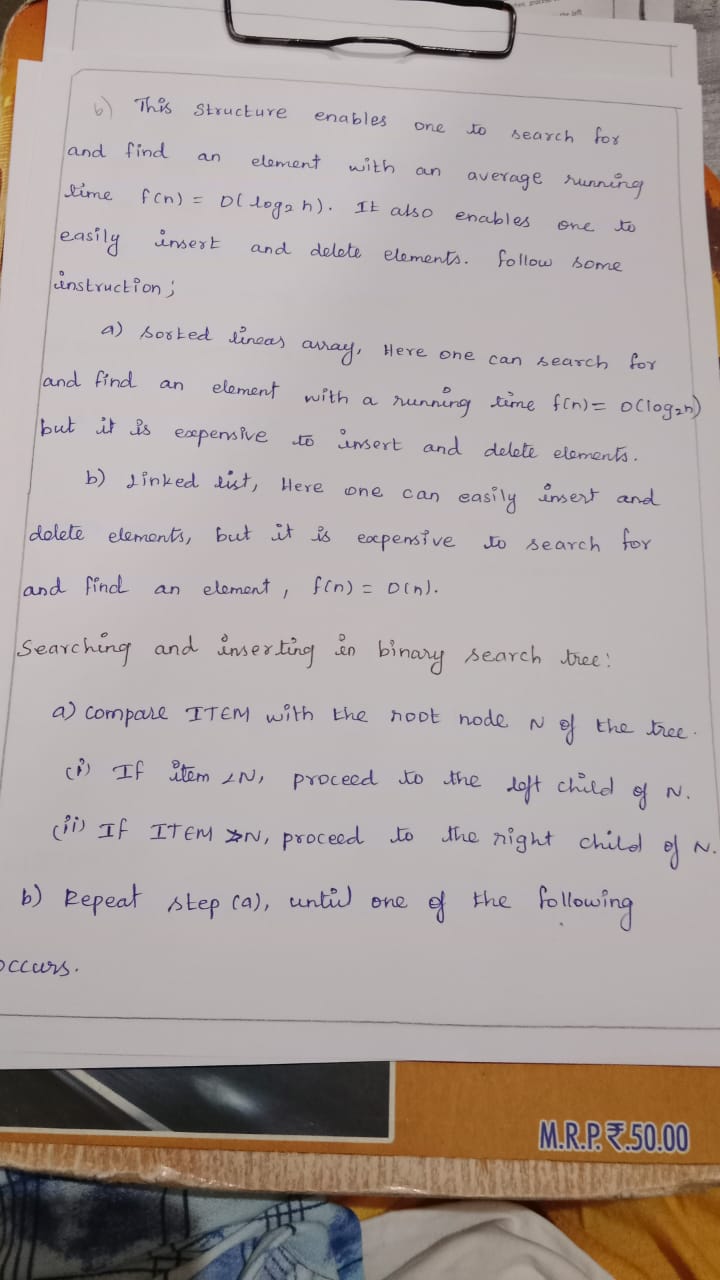 6) This structure enables one to search for
and find an element with an average running
time f(n) = O(log₂ n). It also enables one to
easily insert and delete elements. Follow some
instruction;
a) sorted linear array, Here one can search for
and find an element with a running time f(n) = O(log₂n)
but it is expensive to insert and delete elements.
b) Linked list, Here one can easily insert and
delete elements, but it is expensive to search for
and find an element, f(n) = O(n).
Searching and inserting in binary search tree:
a) compare ITEM with the root node N of the tree.
(i) If item <N, proceed to the left child of N.
(ii) If ITEM >N, proceed to the right child of N.
b) Repeat step (a), until one of the following
occurs.
M.R.P.₹.50.00